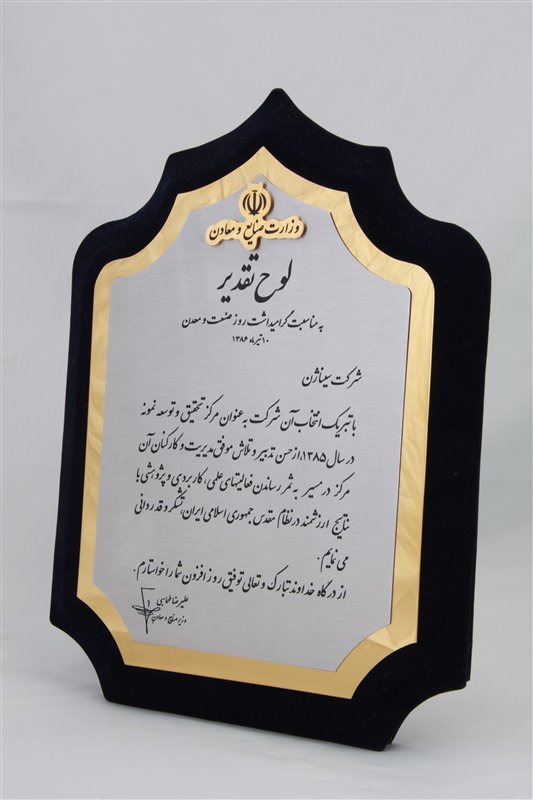 وزارت صنایع و معادن
لوح تقدیر
به مناسبت گرامیداشت روز صنعت و معدن
۱۰ تیرماه ۱۳۸۶
شرکت سیناژن
با تبریک انتخاب آن شرکت به عنوان مرکز تحقیق و توسعه نمونه
در سال ۱۳۸۵، از حسن تدبیر و تلاش موفق مدیریت و کارکنان آن
مرکز در مسیر به ثمر رساندن فعالیتهای علمی، کاربردی و پژوهشی با
نتایج ارزشمند در نظام مقدس جمهوری اسلامی ایران، تشکر و قدردانی
می نمایم.
از درگاه خداوند تبارک و تعالی توفیق روز افزون شما را خواستارم.
علیرضا طهماسبی
وزیر صنایع و معادن